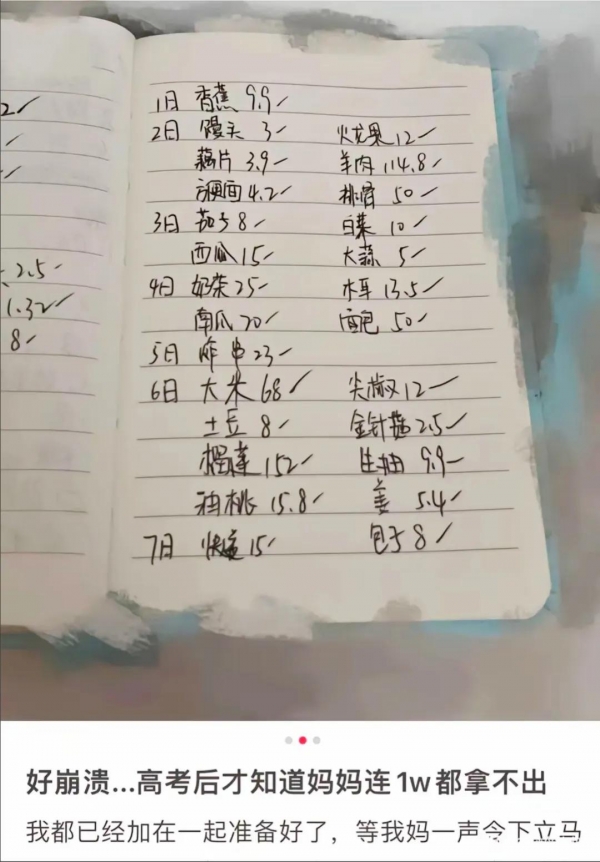 2✓
✓
✓
2.5✓
1.32✓
8✓
1日 香蕉 9.9✓
2日 馒头 3✓ 火龙果 12✓
藕片 3.9✓ 羊肉 114.8✓
方便面 4.2✓ 排骨 50✓
3日 茄子 8✓ 白菜 10✓
西瓜 15✓ 大蒜 5✓
4日 奶茶 25✓ 木耳 13.5✓
南瓜 20✓ 面包 50✓
5日 炸串 23✓
6日 大米 68✓ 尖椒 12✓
土豆 8✓ 金针菇 2.5✓
榴莲 152✓ 生抽 9.9✓
油桃 15.8✓ 姜 5.4✓
7日 快递 15✓ 包子 8✓
好崩溃...高考后才知道妈妈连1w都拿不出
我都已经加在一起准备好了，等我妈一声令下立马